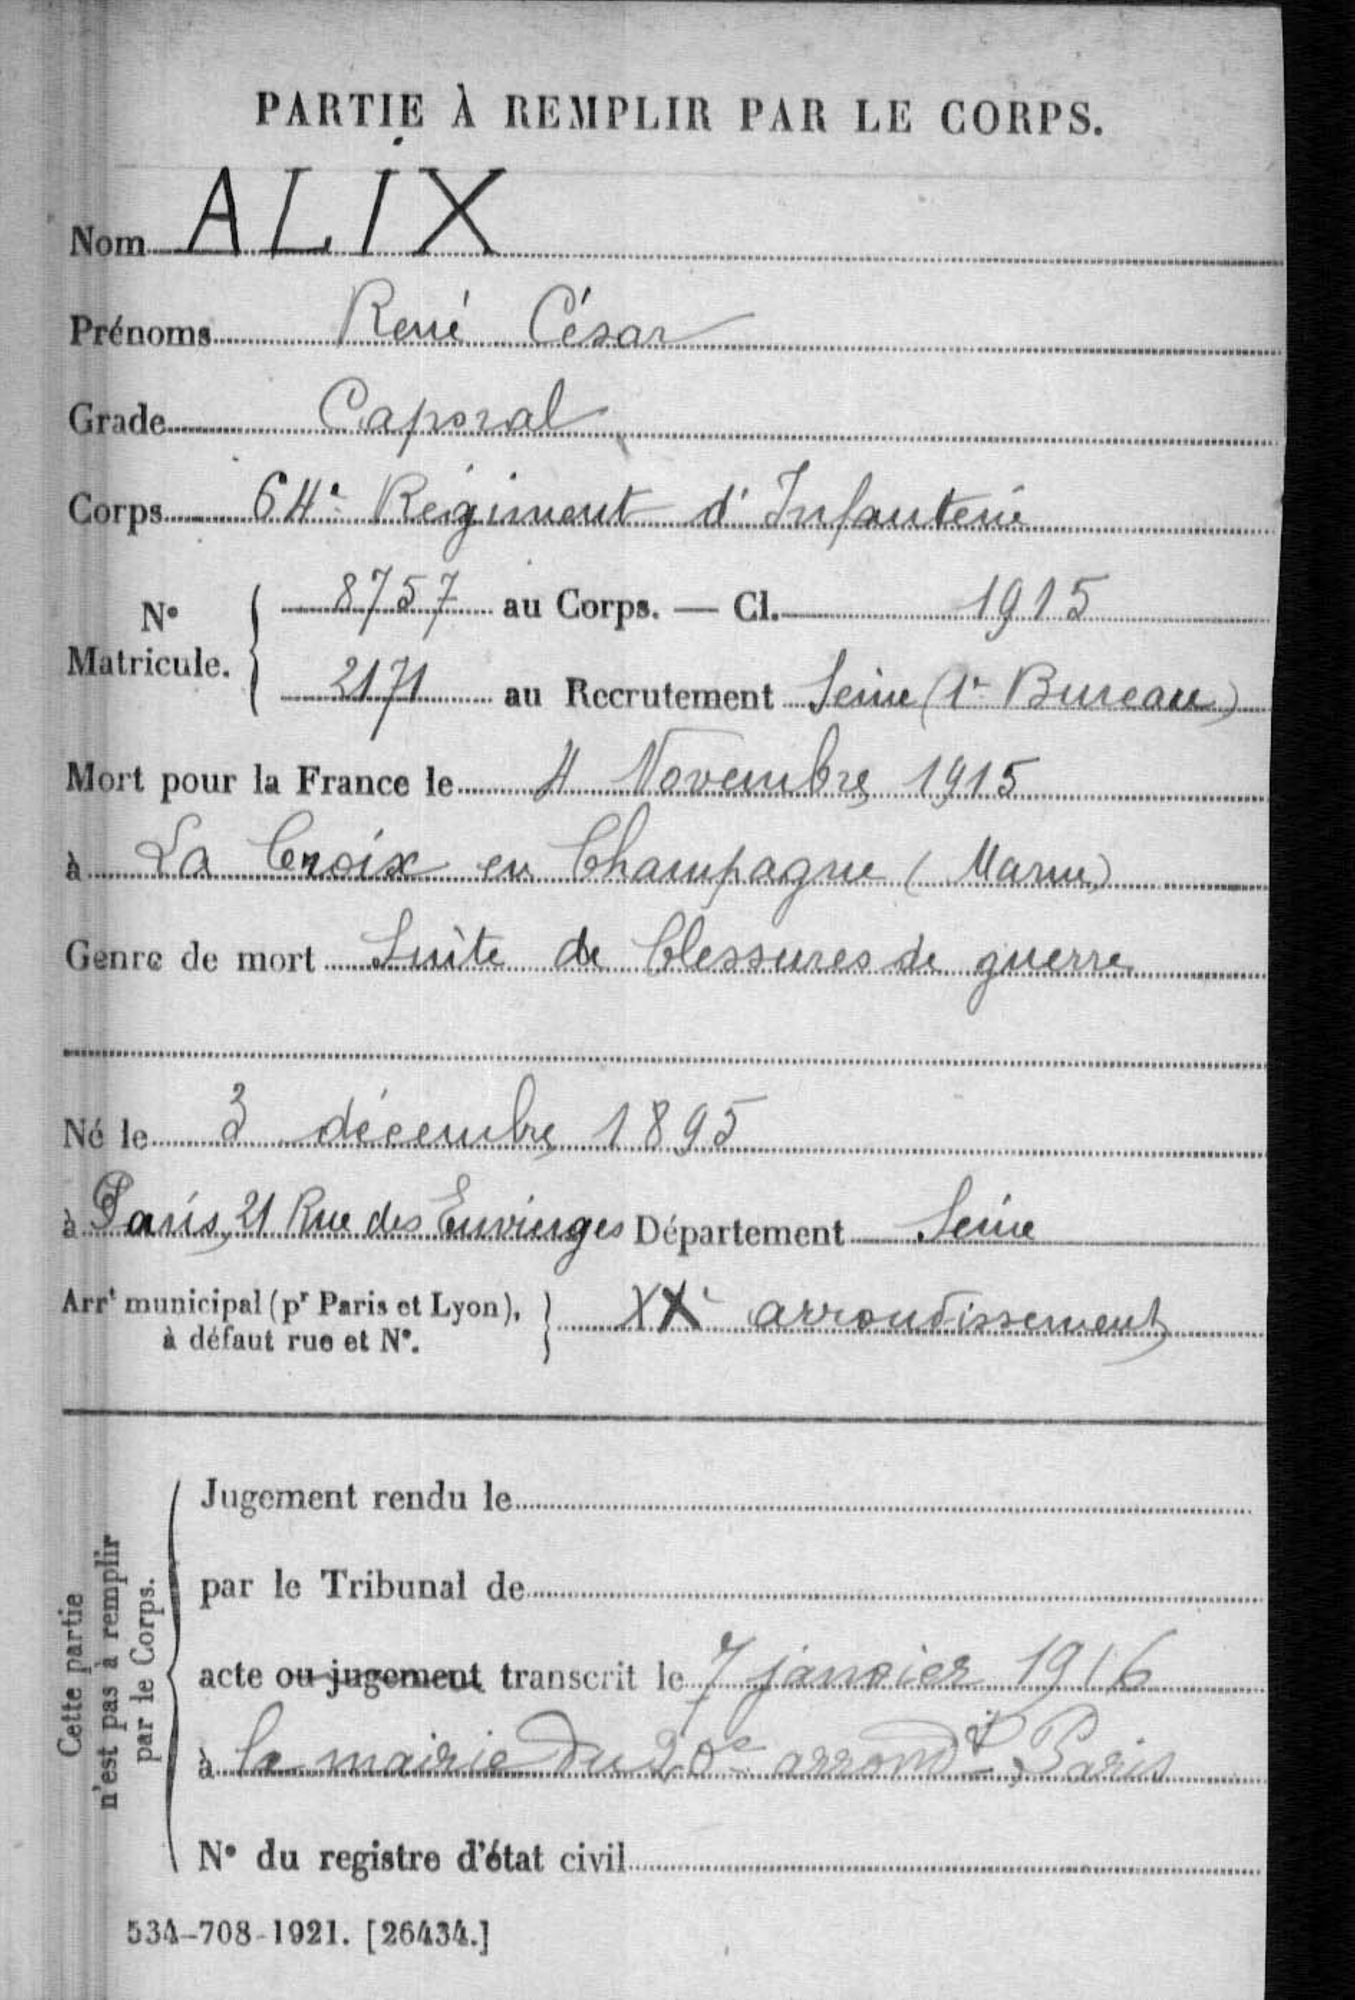 PARTIE À REMPLIR PAR LE CORPS.
Nom ALIX
Prénoms René César
Grade Caporal
Corps 64e Régiment d'Infanterie
N° Matricule. 8757 au Corps. — Cl. 1915
2171 au Recrutement Seine (1er Bureau)
Mort pour la France le 4 Novembre 1915
à La Croix en Champagne (Marne)
Genre de mort Suite de blessures de guerre
Né le 3 décembre 1895
à Paris, 21 Rue des Envierges Département Seine
Arrt municipal (pr Paris et Lyon), à défaut rue et N°. XXe arrondissement
Cette partie n'est pas à remplir par le Corps.
Jugement rendu le
par le Tribunal de
acte ou jugement transcrit le 7 janvier 1916
à la mairie du 20e arrondt, Paris
N° du registre d'état civil
534-708-1921. [26434.]